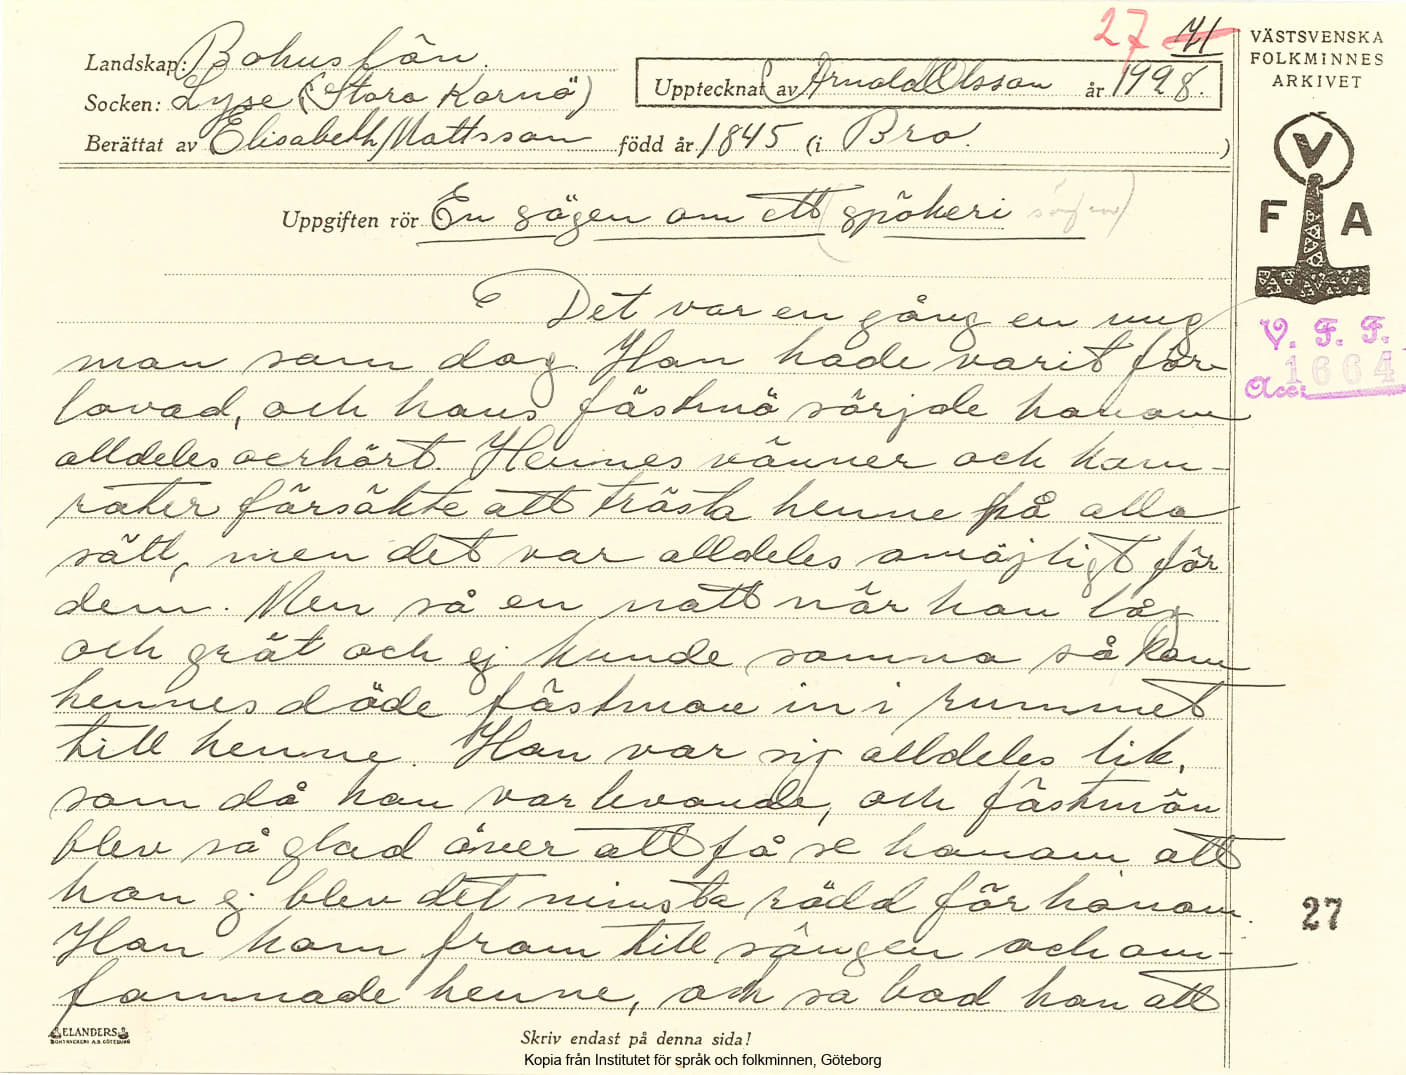 27 41
VÄSTSVENSKA
FOLKMINNES
ARKIVET
Landskap: Bohuslän.
Socken: Lyse (Stora Kornö)
Upptecknat av Arnold Olsson år 1928.
Berättat av Elisabeth Mattsson född år 1845 (i Bro.)
V
F A
Uppgiften rör En sägen om ett (spökeri sägen)
V. F. F.
Acc: 1664
Det var en gång en ung
man som dog. Han hade varit för-
lovad, och hans fästmö sörjde honom
alldeles oerhört. Hennes vänner och kam-
rater försökte att trösta henne på alla
sätt, men det var alldeles omöjligt för
dem. Men så en natt när hon låg
och grät och ej kunde somna så kom
hennes döde fästman in i rummet
till henne. Han var sig alldeles lik,
som då han var levande, och fästmön
blev så glad över att få se honom att
hon ej blev det minsta rädd för honom.
Han kom fram till sängen och om-
famnade henne, och sa bad han att
27
ELANDERS
BOKTRYCKERI A.B. GÖTEBORG
Skriv endast på denna sida!
Kopia från Institutet för språk och folkminnen, Göteborg